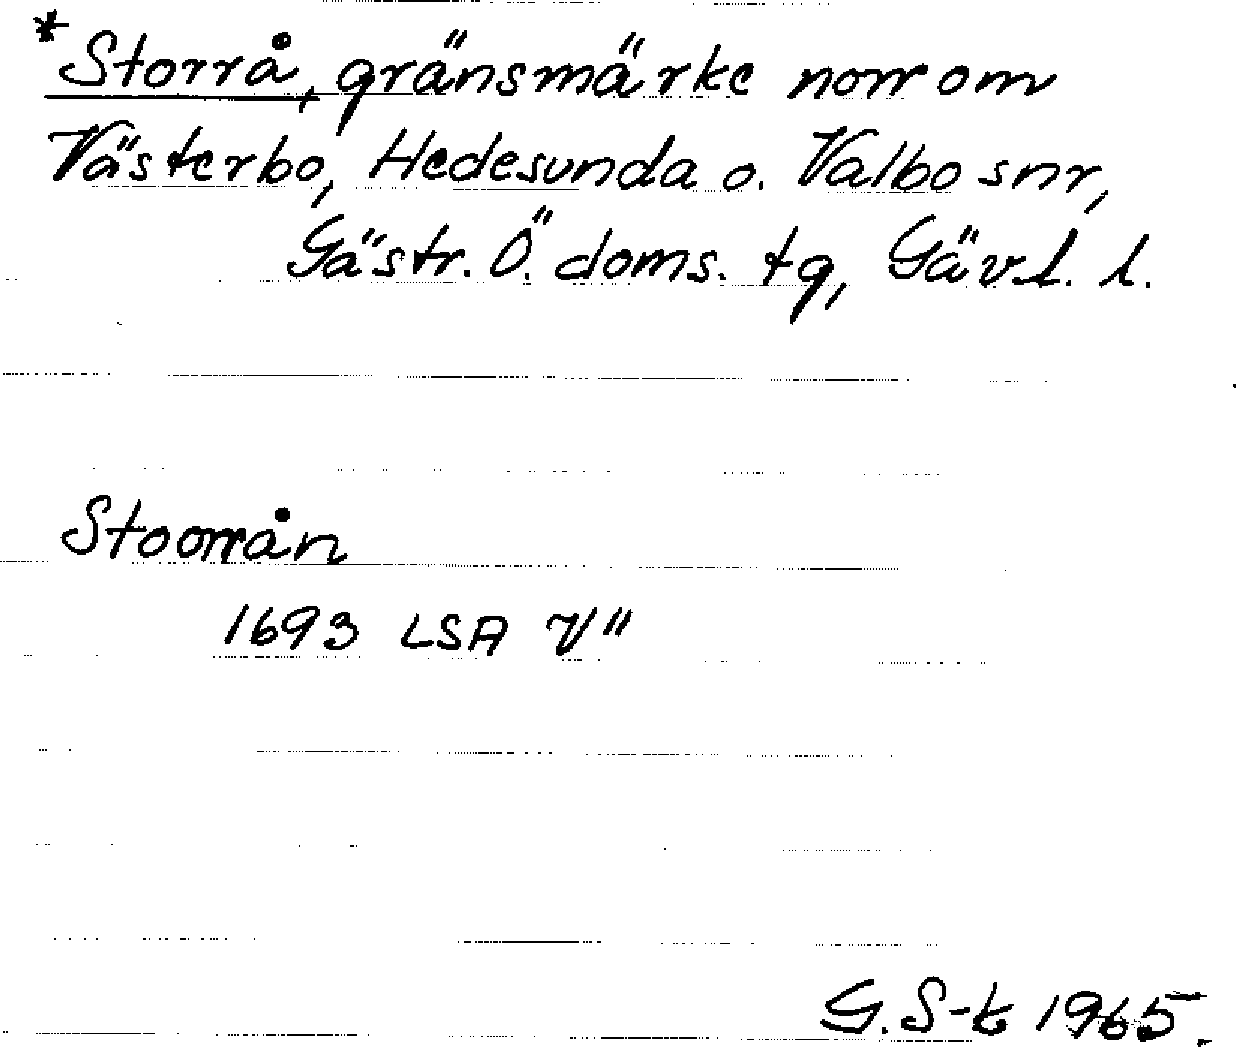 *Storrå, gränsmärke norr om
Västerbo, Hedesunda o. Valbo snr,
Gästr. Ö. doms. tg, Gävl. l.
Stoorrån
1693 LSA V"
G. S-t 1965.